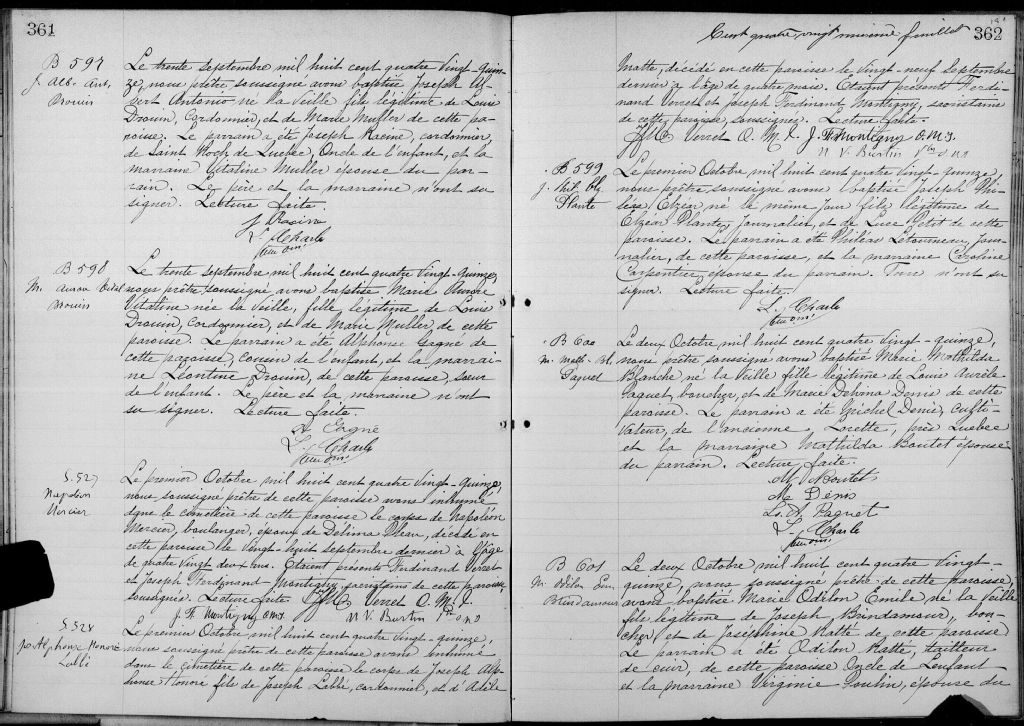 361
B 597
J. Alb. Ant.
Drouin
Le trente septembre mil huit cent quatre vingt-quin-
ze, nous prêtre soussigné avons baptisé Joseph Al-
bert Antonio né la veille, fils légitime de Louis
Drouin, Cordonnier, et de Marie Muller de cette pa-
roisse. Le parrain a été Joseph Racine, cordonnier,
de Saint Roch de Quebec, Oncle de l'enfant, et la
marraine Vitaline Muller épouse du par-
rain. Le père et la marraine n'ont su
signer. Lecture faite.
J. Racine
L. Charle
ptre o.m.i.
B 598
M. Auror Vital
Drouin
Le trente septembre mil huit cent quatre vingt-quinze,
nous prêtre soussigné avons baptisé Marie Aurore
Vitaline née la veille, fille légitime de Louis
Drouin, cordonnier, et de Marie Muller de cette
paroisse. Le parrain a été Alphonse Gagné de
cette paroisse, cousin de l'enfant, et la marrai-
ne Léontine Drouin, de cette paroisse, sœur
de l'enfant. Le père et la marraine n'ont
su signer. Lecture faite.
A Gagné
L. Charle
ptre o.m.i.
S. 527
Napoléon
Mercier
Le premier Octobre mil huit cent quatre vingt-quinze,
nous soussigné prêtre de cette paroisse avons inhumé
dans le cimetière de cette paroisse le corps de Napoléon
Mercier, boulanger, époux de Délima Pleau, décédé en
cette paroisse le vingt-huit septembre dernier à l'âge
de quatre vingt deux ans. Etaient présents Ferdinand Verret
et Joseph Ferdinand Montigny, sacristains de cette paroisse,
soussignés. Lecture faite. Verret O. M. I.
J. F. Montigny O.M.I. N V. Burtin Ptre O M I
S. 528
Jos Alphonse Honoré
Labbé
Le premier Octobre mil huit cent quatre vingt-quinze,
nous soussigné prêtre de cette paroisse avons inhumé
dans le cimetière de cette paroisse le corps de Joseph Alp-
honse Honoré fils de Joseph Labbé, cordonnier, et d'Adèle
Cent quatre vingt unième feuillet
362
Matte, décédé en cette paroisse le vingt-neuf Septembre
dernier à l'âge de quatre mois. Etaient présents Ferdi-
nand Verret et Joseph Ferdinand Montigny, sacristains
de cette paroisse, soussignés. Lecture faite.
Verret O. M. I. J. F. Montigny O.M.I.
N V. Burtin Ptre O M I
B 599
J. Phil. Elz.
Plante
Le premier Octobre mil huit cent quatre vingt-quinze,
nous prêtre soussigné avons baptisé Joseph Phi-
léas Elzéar né le même jour fils légitime de
Elzéar Plante, Journalier, et de Luce Petit de cette
paroisse. Le parrain a été Philéas Létourneau, jour-
nalier, de cette paroisse, et la marraine Caroline
Carpentier, épouse du parrain. Tous n'ont su
signer. Lecture faite.
L. Charle
ptre o.m.i.
B 600
M. Math. Bl.
Paquet
Le deux Octobre mil huit cent quatre vingt-quinze,
nous prêtre soussigné avons baptisé Marie Mathilda
Blanche né la veille fille légitime de Louis Aurèle
Paquet, boucher, et de Marie Delvina Denis de cette
paroisse. Le parrain a été Michel Denis, culti-
vateur, de l'ancienne Lorette, près Quebec
et la marraine Mathilda Boutet épouse
du parrain. Lecture faite.
M Boutet
M Denis
L. A Paquet
L. Charle
ptre o.m.i.
B 601
M. Odilon Em.
Brindamour
Le deux Octobre mil huit cent quatre vingt-
quinze, nous soussigné prêtre de cette paroisse,
avons baptisé Marie Odilon Emile né la veille
fils légitime de Joseph Brindamour, bou-
cher, et de Josephine Ratté de cette paroisse
Le parrain a été Odilon Ratté, tailleur
de cuir, de cette paroisse Oncle de l'enfant
et la marraine Virginie Poulin, épouse du